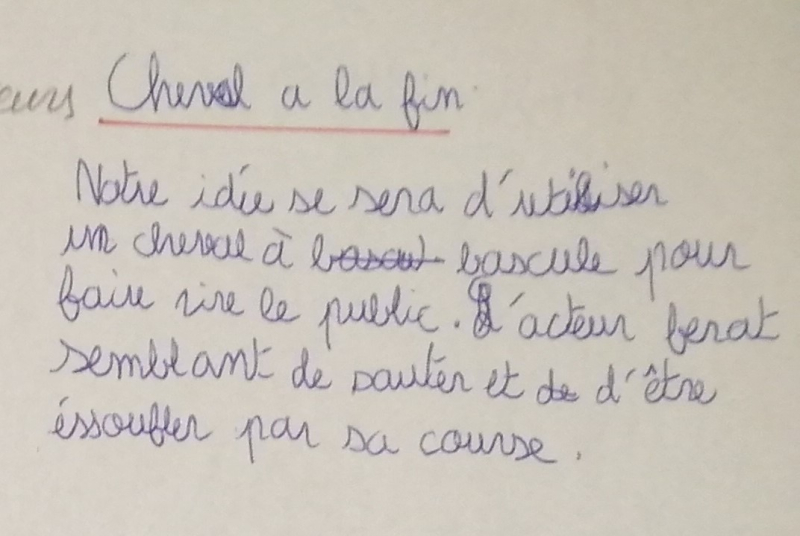 Cheval a la fin
Notre idée se sera d'utiliser
un cheval à bascule pour
faire rire le public. L'acteur ferat
semblant de sauter et d'être
éssoufler par sa course.